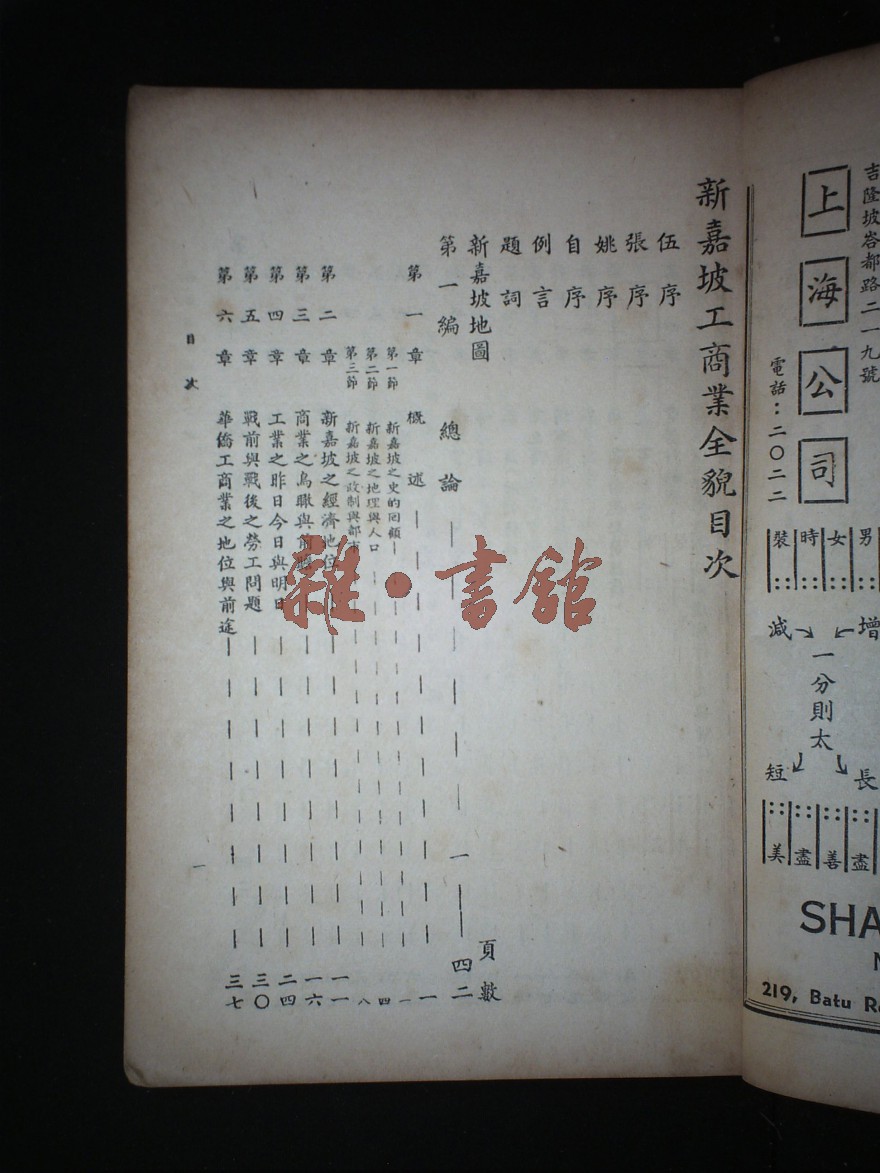 新嘉坡工商業全貌目次
伍序
張序
姚序
自序
例言
題詞
新嘉坡地圖 頁數
第一編 總論 一—四二
第一章 概述 一
第一節 新嘉坡之史的回顧 一
第二節 新嘉坡之地理與人口 四
第三節 新嘉坡之政制與都市 八
第二章 新嘉坡之經濟地位 一一
第三章 商業之鳥瞰與前瞻 一六
第四章 工業之昨日今日與明日 二四
第五章 戰前與戰後之勞工問題 三〇
第六章 華僑工商業之地位與前途 三七
目次
一
雜·書館
吉隆坡峇都路二一九號
上海公司
電話：二〇二二
男
女
時
裝
增
減
一分則太
長
短
盡
善
盡
美
SHA
219, Batu R